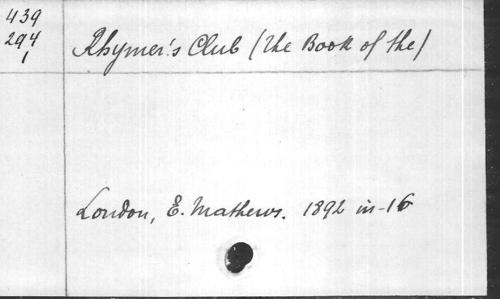 439
294
1
Rhymer's Club (The Book of the)
London, E. Mathews. 1892 in-16